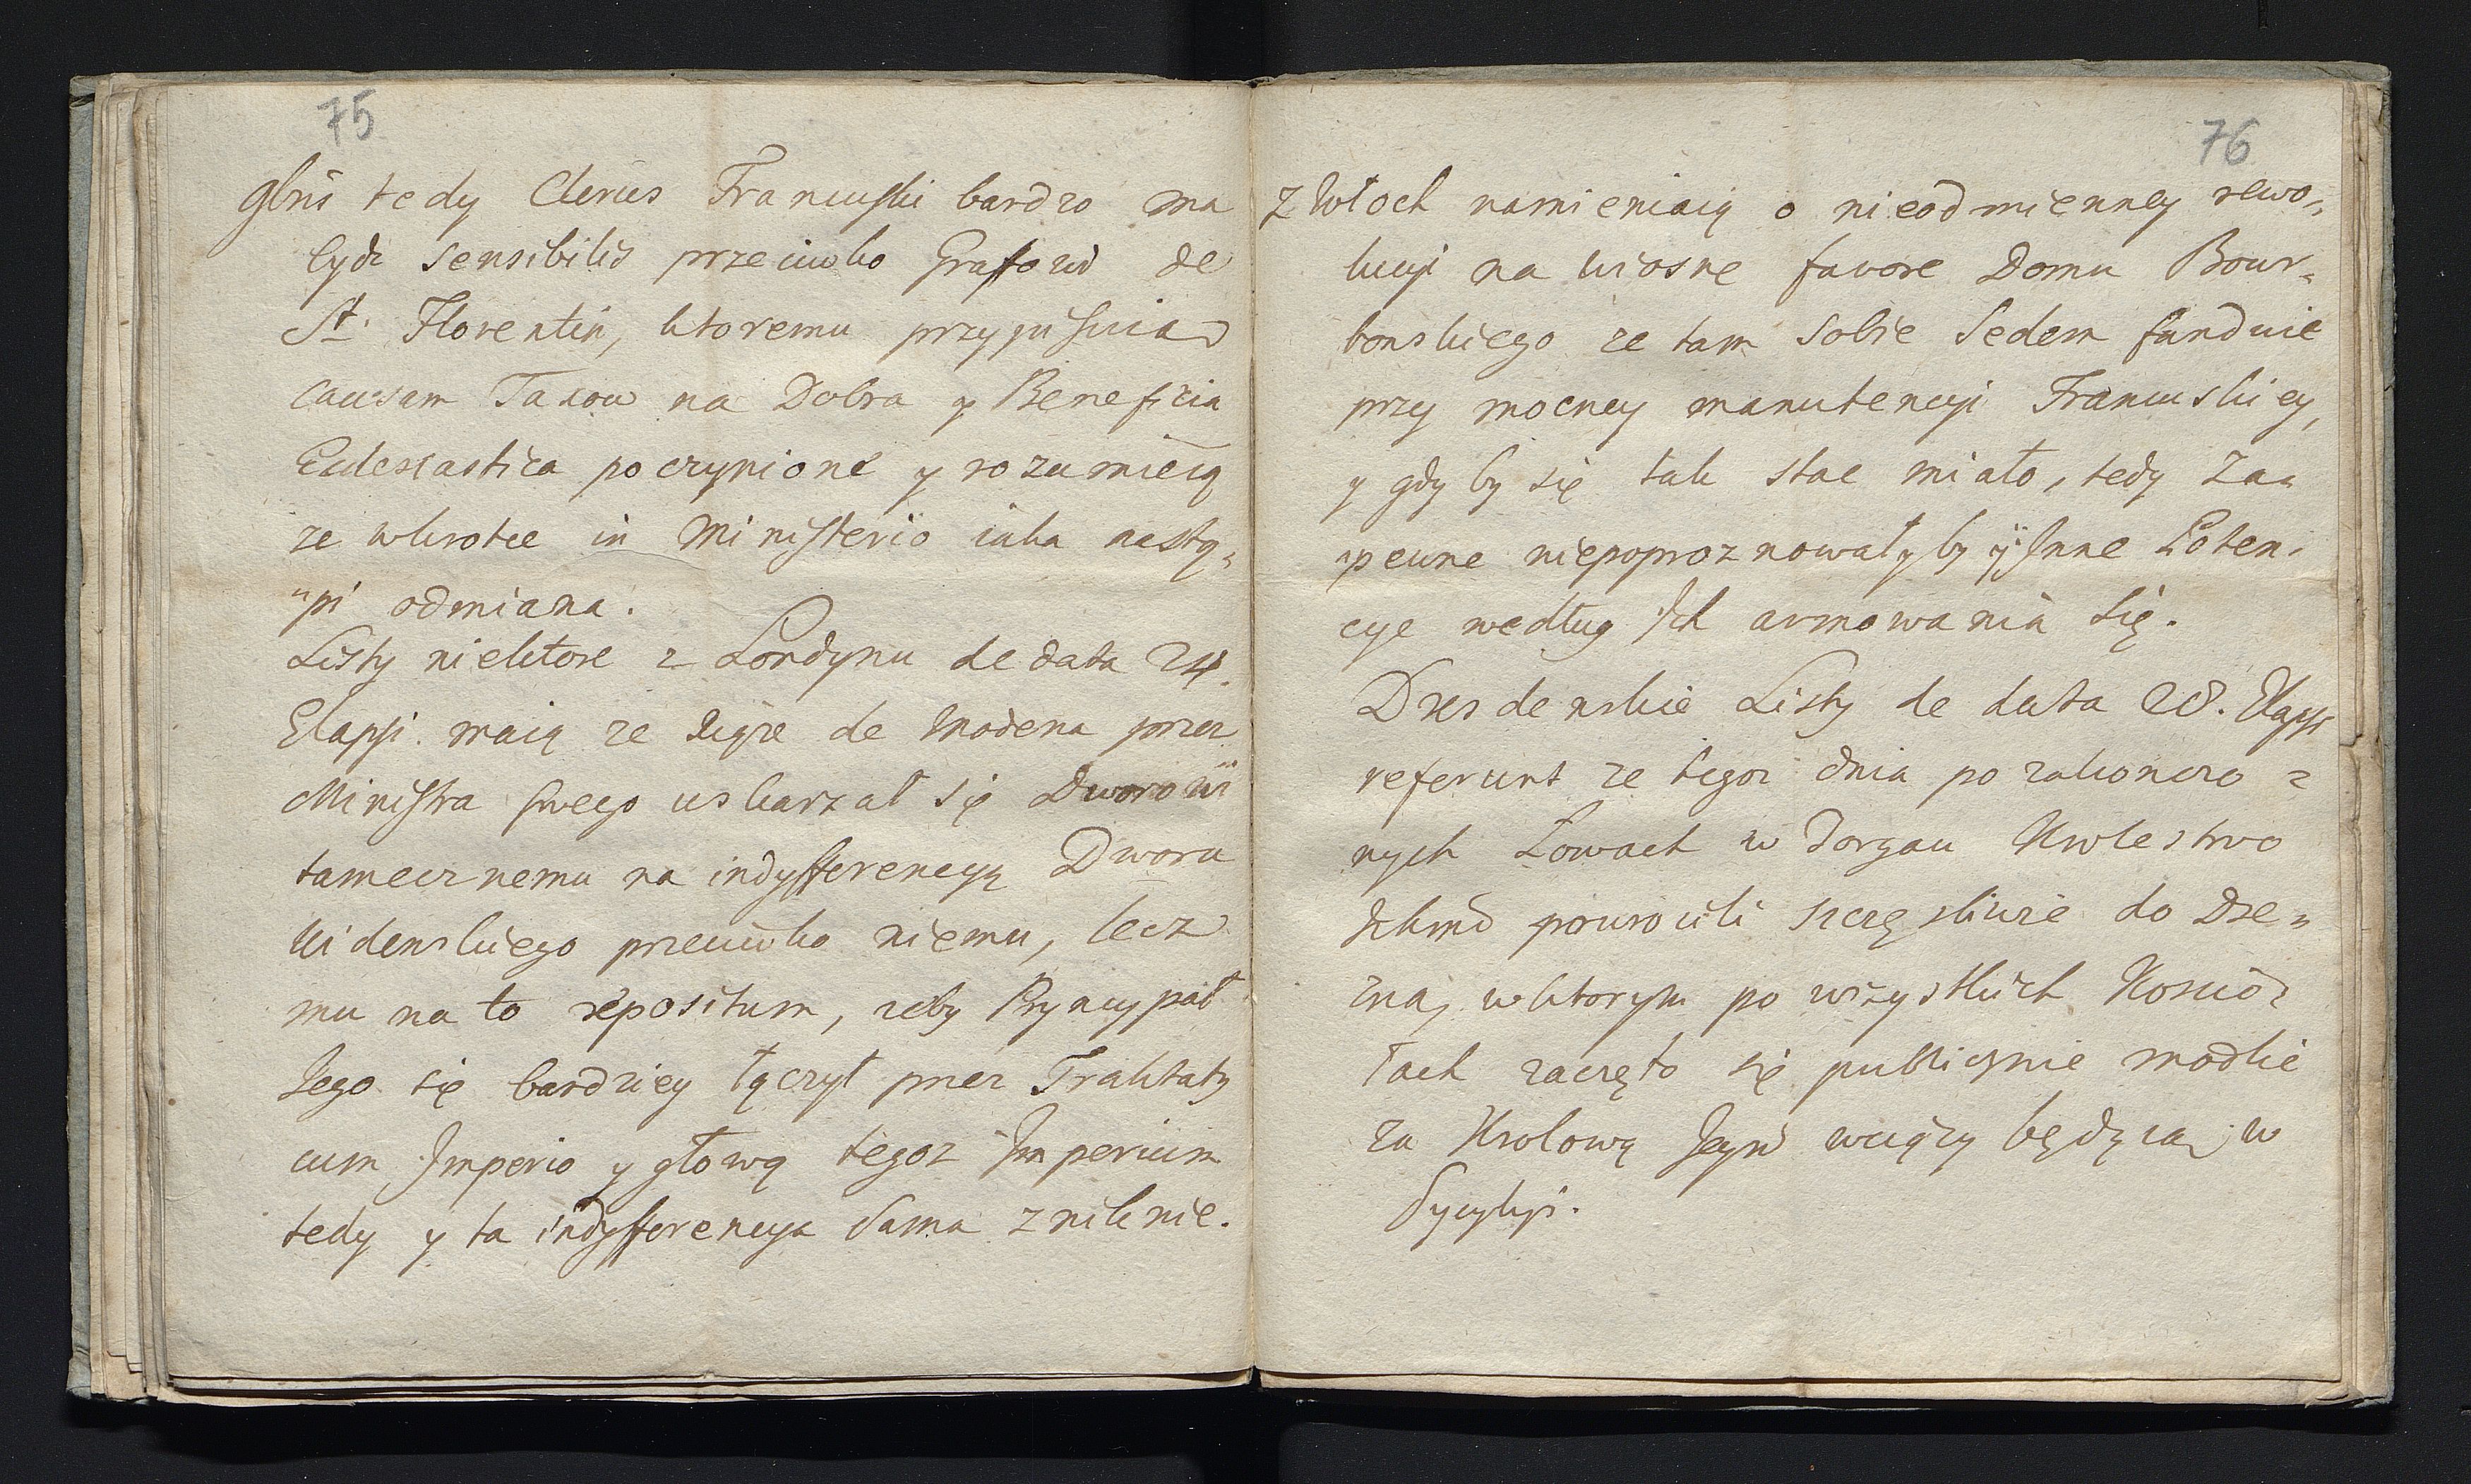 75
glnš tedy Clerus Francuski bardzo ma
bydź sensibilis przeciwko Graffowi de
St. Florentin, ktoremu przypuscia
causam Taxow na Dobra y Beneficia
Ecclesiastica poczynione y rozumieią
ze wkrotce in Ministerio iaka nastą„
„pi odmiana.
Listy niektore z Londynu de data 24.
Elapsi. maią ze Xiąże de Modena przez
Ministra swego uskarzał się Dworowi
tamecznemu na indyfferencyą Dworu
Widenskiego przeciwko niemu, lecz
mu na to repositum, zeby Pryncypał
Jego się bardziey łączył przez Traktaty
cum Imperio y głową tegoz Imperium
tedy y ta indyfferencya sama zniknie.
76
z Włoch namieniaią o nieodmienney rewo„
lucyi na wiosne favore Domu Bour„
bonskiego ze tam sobie Sedem funduie
przy mocney manutencyi Francuskiey,
y gdy by się tak stac miało, tedy Za„
„pewne niepoproznowały by ÿ Inne Poten.
cye według Ich armowania się.
Drezdenskie Listy de data 28. Elapsi
referunt ze tegoz dnia po zakonczo=
nych Łowach w Torgau Krolestwo
Ichmć powrocili szczęsliwie do Dre„
zna, w ktorym po wszystkich Koscio=
łach zaczęto się publicznie modlic
za Krolową Jeym wciąży będącą w
Sycylyi.